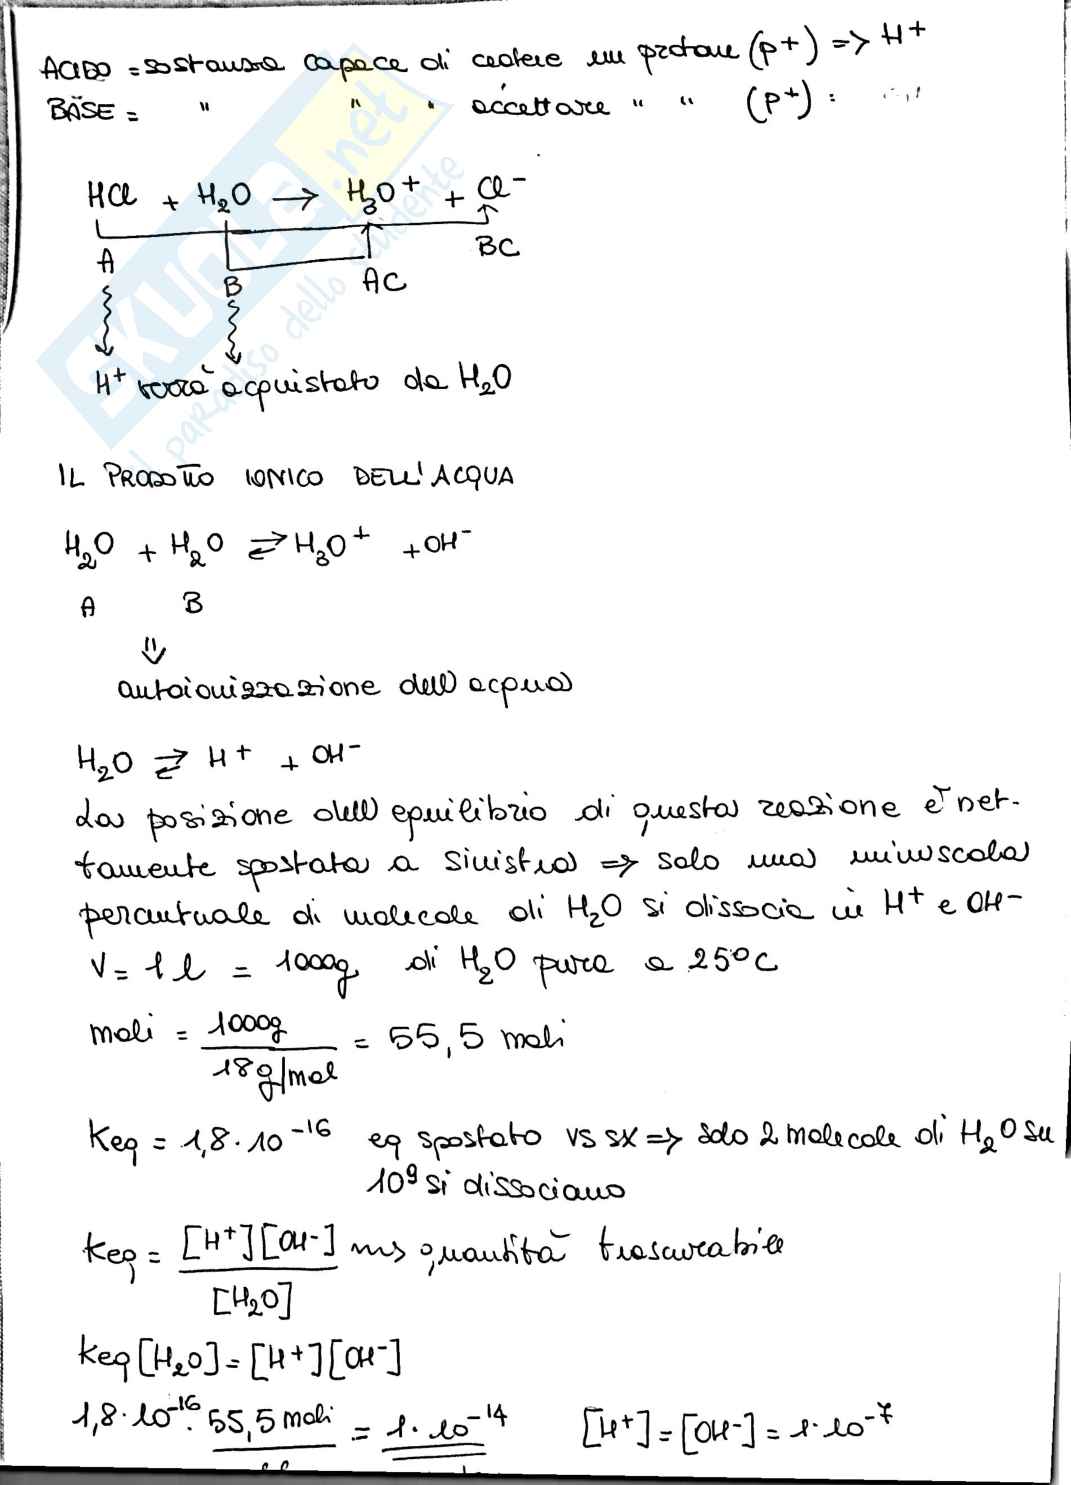 ACIDO = sostanza capace di cedere un protone (p+) => H+
BASE = " " " accettare " " (p+) :
HCl + H₂O → H₃O⁺ + Cl⁻
A B AC BC
H⁺ verrà acquistato da H₂O
IL PRODOTTO IONICO DELL'ACQUA
H₂O + H₂O ⇄ H₃O⁺ + OH⁻
A B
⇓
autoionizzazione dell'acqua
H₂O ⇄ H⁺ + OH⁻
La posizione dell'equilibrio di questa reazione è net-
tamente spostata a sinistra => solo una minuscola
percentuale di molecole di H₂O si dissocia in H⁺ e OH⁻
V = 1 l = 1000g di H₂O pura a 25°C
moli = 1000g / 18g/mol = 55,5 moli
Keq = 1,8·10⁻¹⁶ eq spostato vs sx => solo 2 molecole di H₂O su
10⁹ si dissociano
Keq = [H⁺][OH⁻] / [H₂O] ms quantità trascurabile
Keq[H₂O] = [H⁺][OH⁻]
1,8·10⁻¹⁶ · 55,5 moli = 1·10⁻¹⁴ [H⁺] = [OH⁻] = 1·10⁻⁷
SKUOLA.net
il paradiso dello studente